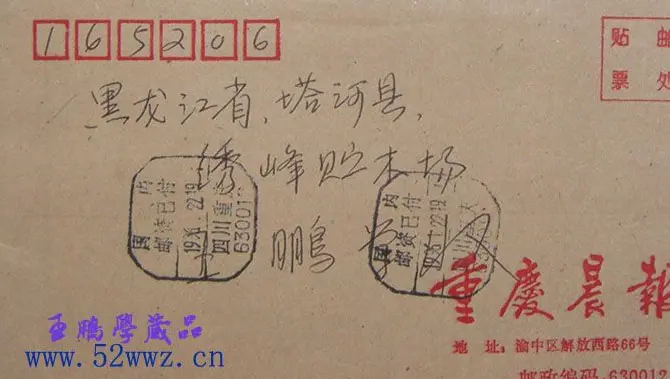 165206
贴 邮
票 处
黑龙江省,塔河县,
绣峰贮木场
王 鹏 学
国 内
邮资已付
1996.1.22.19
四川重庆
630001
国 内
邮资已付
1996.1.22.19
重慶晨報
地 址:渝中区解放西路66号
邮政编码:630012
王鹏學藏品
www.52wwz.cn